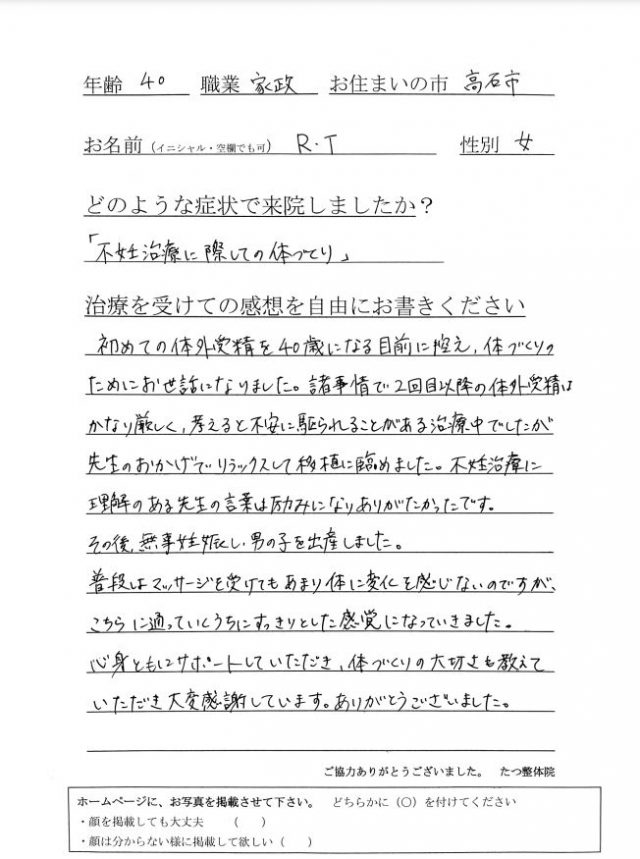 年齢 40 職業 家政 お住まいの市 高石市
お名前（イニシャル・空欄でも可） R.T 性別 女
どのような症状で来院しましたか？
「不妊治療に際しての体づくり」
治療を受けての感想を自由にお書きください
初めての体外受精を40歳になる目前に控え、体づくりの
ためにお世話になりました。諸事情で2回目以降の体外受精は
かなり厳しく、考えると不安に駆られることがある治療中でしたが
先生のおかげでリラックスして移植に臨めました。不妊治療に
理解のある先生の言葉は励みになりありがたかったです。
その後、無事妊娠し、男の子を出産しました。
普段はマッサージを受けてもあまり体に変化を感じないのですが、
こちらに通っていくうちにすっきりとした感覚になっていきました。
心身ともにサポートしていただき、体づくりの大切さも教えて
いただき大変感謝しています。ありがとうございました。
ご協力ありがとうございました。 たつ整体院
ホームページに、お写真を掲載させて下さい。 どちらかに（○）を付けてください
・顔を掲載しても大丈夫 （ ）
・顔は分からない様に掲載して欲しい（ ）